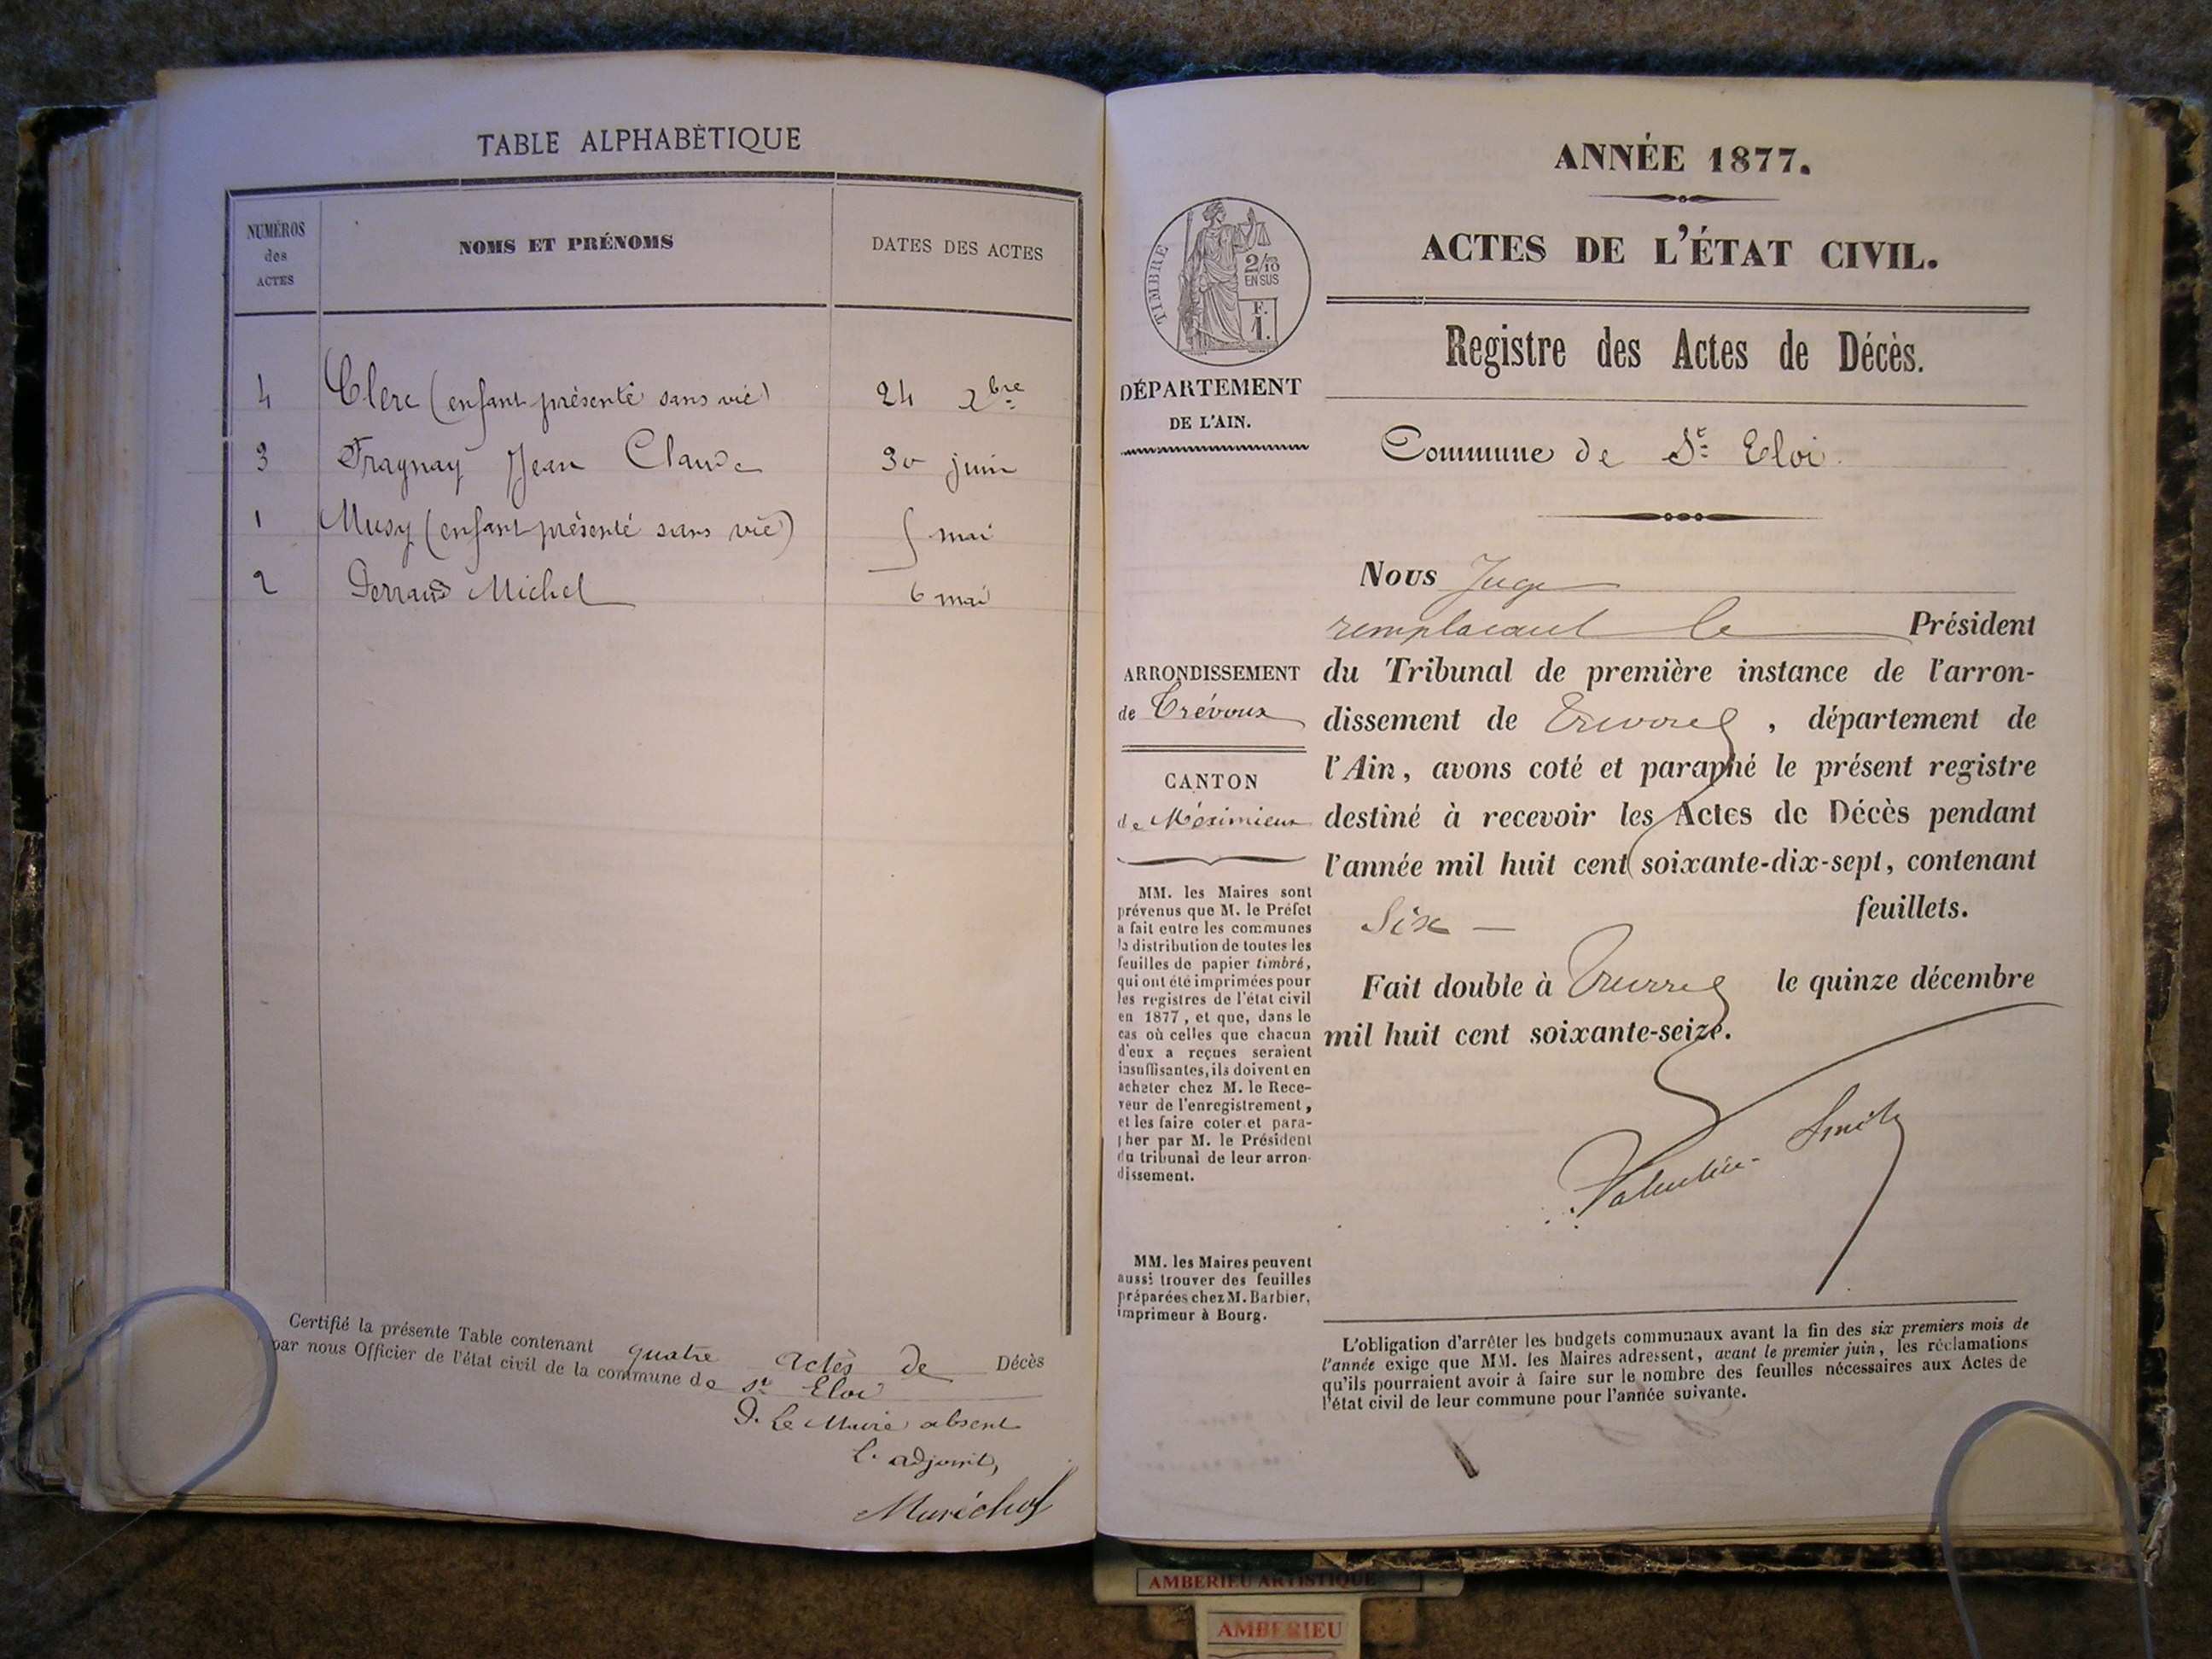 TABLE ALPHABÈTIQUE
NUMÉROS des ACTES
NOMS ET PRÉNOMS
DATES DES ACTES
4 Clerc (enfant présenté sans vie) 24 xbre
3 Fragnay Jean Claude 30 juin
1 Musy (enfant présenté sans vie) 5 mai
2 Perraud Michel 6 mai
Certifié la présente Table contenant quatre actes de Décès
par nous Officier de l'état civil de la commune de St Eloi
P. Le Maire absent
L. adjoint,
Maréchal
ANNÉE 1877.
ACTES DE L'ÉTAT CIVIL.
TIMBRE
2/10
EN SUS
F.
1.
DÉPARTEMENT
DE L'AIN.
Registre des Actes de Décès.
Commune de St Eloi.
Nous Juge
remplacant le Président
du Tribunal de première instance de l'arron-
dissement de Trevoux, département de
l'Ain, avons coté et paraphé le présent registre
destiné à recevoir les Actes de Décès pendant
l'année mil huit cent soixante-dix-sept, contenant
Six feuillets.
Fait double à Trevoux le quinze décembre
mil huit cent soixante-seize.
Valentin-Smith
ARRONDISSEMENT
de Trévoux
CANTON
de Méximieux
MM. les Maires sont
prévenus que M. le Préfet
a fait entre les communes
la distribution de toutes les
feuilles de papier timbré,
qui ont été imprimées pour
les registres de l'état civil
en 1877, et que, dans le
cas où celles que chacun
d'eux a reçues seraient
insuffisantes, ils doivent en
acheter chez M. le Rece-
veur de l'enregistrement,
et les faire coter et para-
pher par M. le Président
du tribunal de leur arron-
dissement.
MM. les Maires peuvent
aussi trouver des feuilles
préparées chez M. Barbier,
imprimeur à Bourg.
L'obligation d'arrêter les budgets communaux avant la fin des six premiers mois de
l'année exige que MM. les Maires adressent, avant le premier juin, les réclamations
qu'ils pourraient avoir à faire sur le nombre des feuilles nécessaires aux Actes de
l'état civil de leur commune pour l'année suivante.
AMBERIEU ARTISTIQUE
AMBERIEU